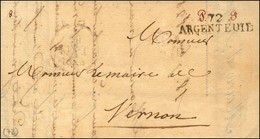 P.72.P
ARGENTEUIL
Monsieur
Monsieur Lemaire de
Vernon